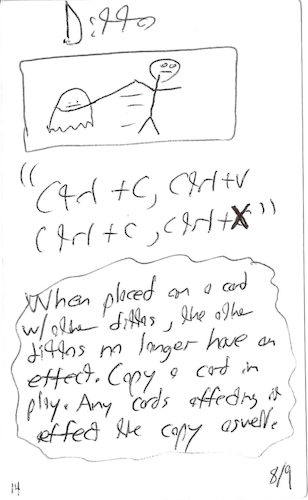 Ditto
"Ctrl+C, Ctrl+V
Ctrl+C, Ctrl+X"
When placed on a card
w/other dittos, the other
dittos no longer have an
effect. Copy a card in
play. Any cards affecting it
effect the copy aswell.
14
8/9